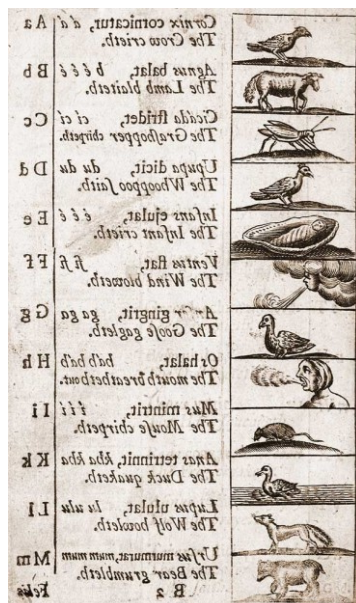 Cornix cornicatur, á á A a
The Crow crieth.
Agnus balat, b é é é B b
The Lamb blaiteth.
Cicada stridet, ci ci C c
The Grashopper chirpeth.
Upupa dicit, du du D d
The Whooppoo saith.
Infans ejulat, é é é E e
The Infant crieth.
Ventus flat, fi fi F f
The Wind bloweth.
gingrit, ga ga G g
The Goose gagleth.
Os halat, hà'h hà'h H h
The mouth breatheth out.
Mus mintrit, í í í I i
The Mouse chirpeth.
Anas tetrinnit, kha kha K k
The Duck quaketh.
Lupus ululat, lu ulu L l
The Wolf howleth.
Ursus murmurat, mum mum M m
The Bear grumbleth.
B 2 Felis